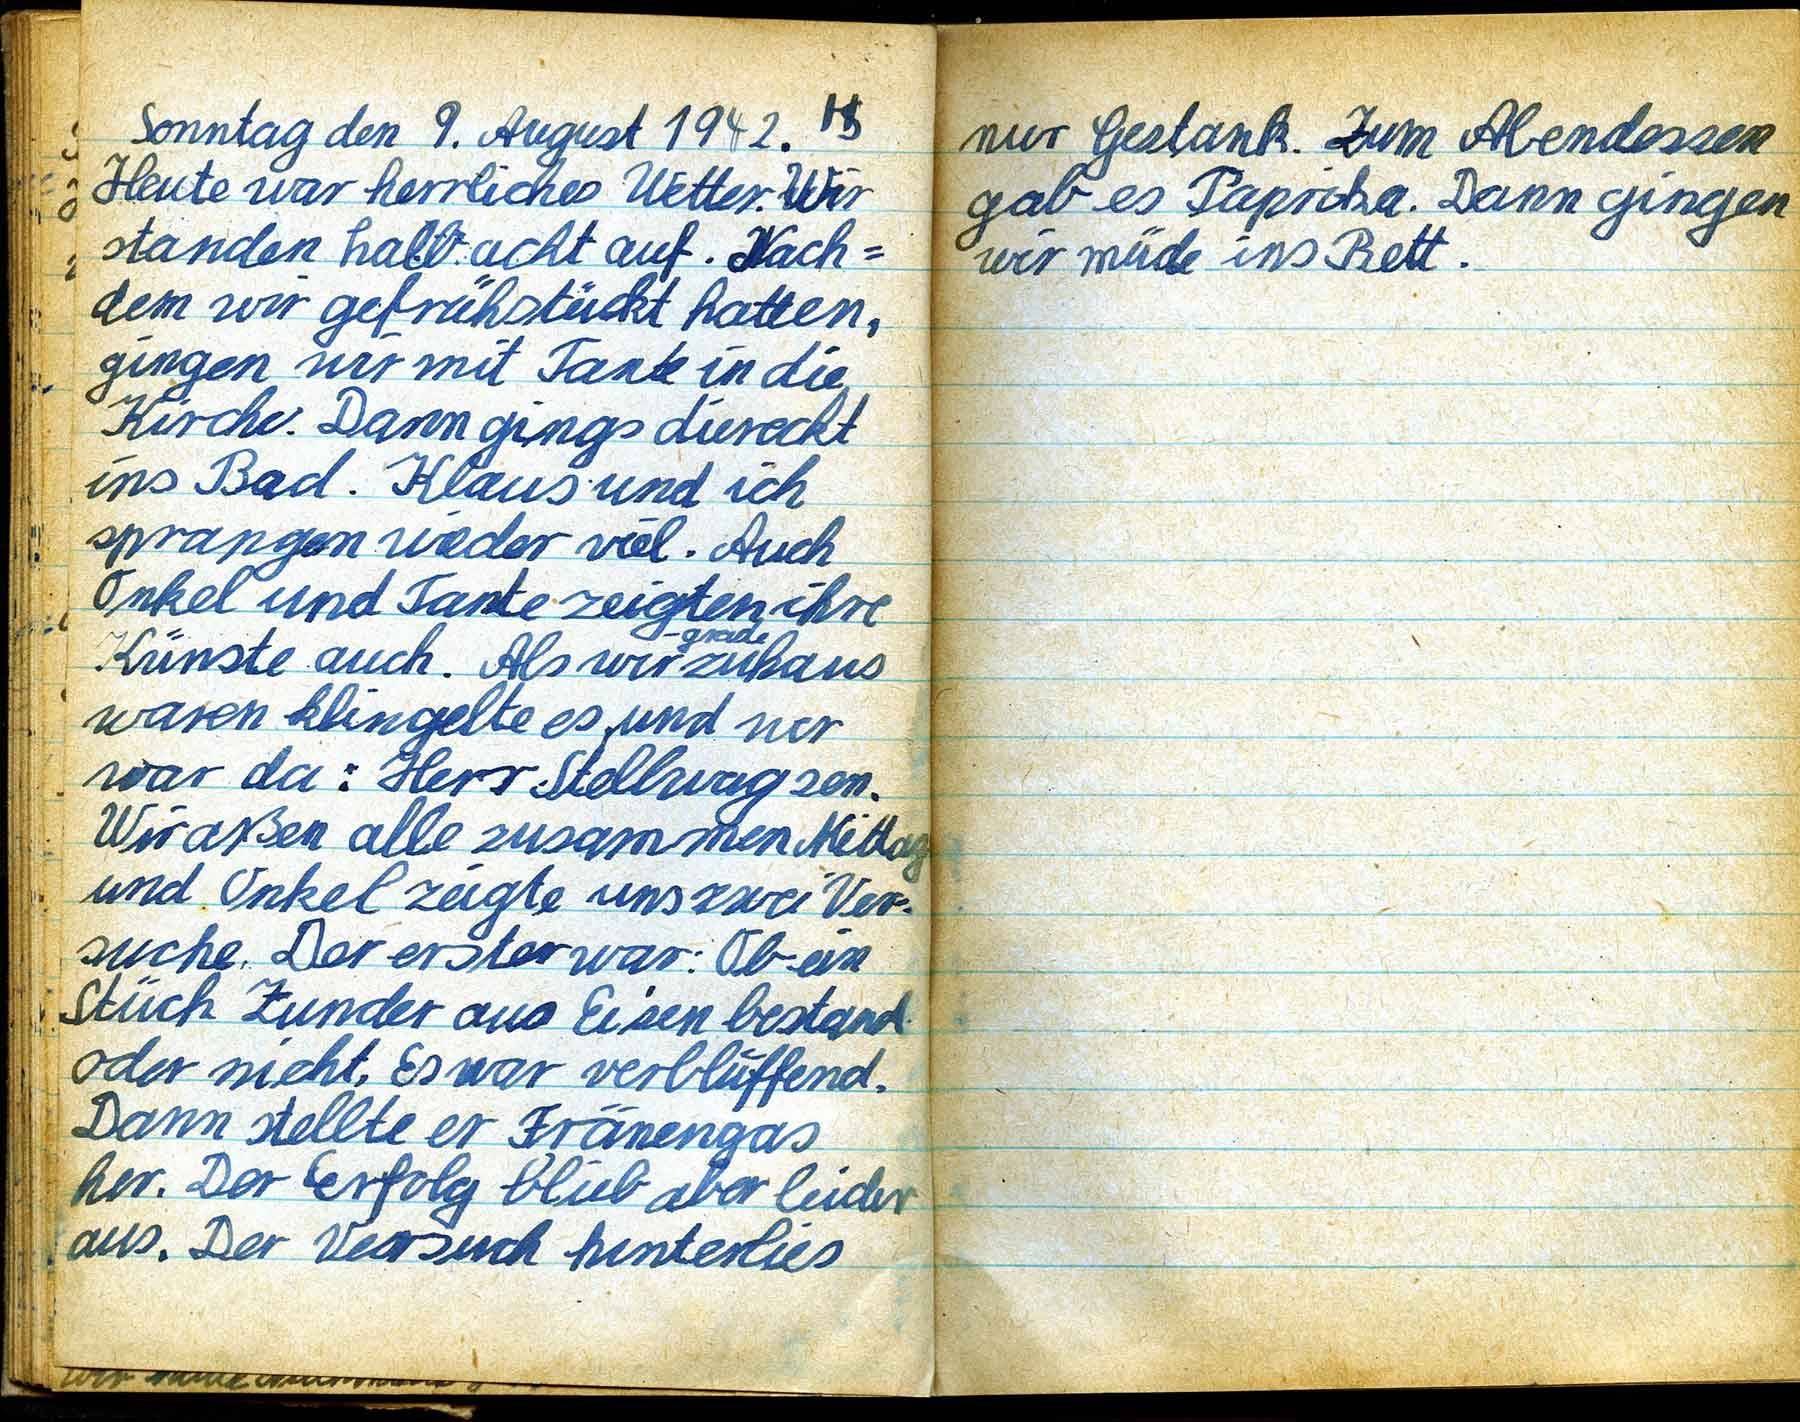 Sonntag den 9. August 1942. HS
Heute war herrliches Wetter. Wir
standen halb acht auf. Nach=
dem wir gefrühstückt hatten,
gingen wir mit Tante in die
Kirche. Dann gings diereckt
ins Bad. Klaus und ich
sprangen wieder viel. Auch
Onkel und Tante zeigten ihre
grade
Künste auch. Als wir zuhaus
waren klingelte es, und wer
war da: Herr Stellwag
Wir aßen alle zusammen Mittag
und Onkel zeigte uns zwei Ver-
suche. Der erster war: Ob ein
Stück Zunder aus Eisen bestand
oder nicht. Es war verblüffend.
Dann stellte er Tränengas
her. Der Erfolg blieb aber leider
aus. Der Versuch hinterlies
nur Gestank. Zum Abendessen
gab es Papricka. Dann gingen
wir müde ins Bett.